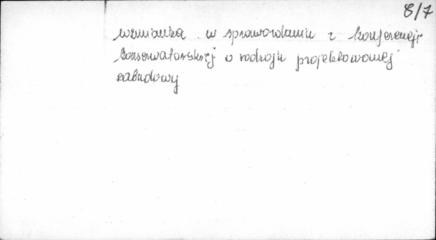 8/7
wzmianka w sprawozdaniu z konferencji
konserwatorskiej o rodzaju projektowanej
zabudowy